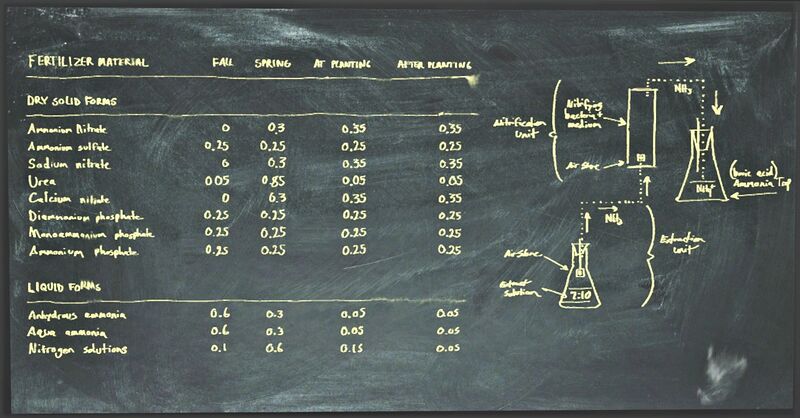 FERTILIZER MATERIAL FALL SPRING AT PLANTING AFTER PLANTING
DRY SOLID FORMS
Ammonium Nitrate 0 0.3 0.35 0.35
Ammonium sulfate 0.25 0.25 0.25 0.25
Sodium nitrate 0 0.3 0.35 0.35
Urea 0.05 0.85 0.05 0.05
Calcium nitrate 0 0.3 0.35 0.35
Diammonium phosphate 0.25 0.25 0.25 0.25
Monoammonium phosphate 0.25 0.25 0.25 0.25
Ammonium phosphate 0.25 0.25 0.25 0.25
LIQUID FORMS
Anhydrous ammonia 0.6 0.3 0.05 0.05
Aqua ammonia 0.6 0.3 0.05 0.05
Nitrogen solutions 0.1 0.6 0.15 0.05
NH3
Nitrification
unit
Nitrifying
bacteria +
medium
Air Stone
(boric acid)
Ammonia Trap
NH4+
NH3
Extraction
unit
Air Stone
Extract
solution
7:10